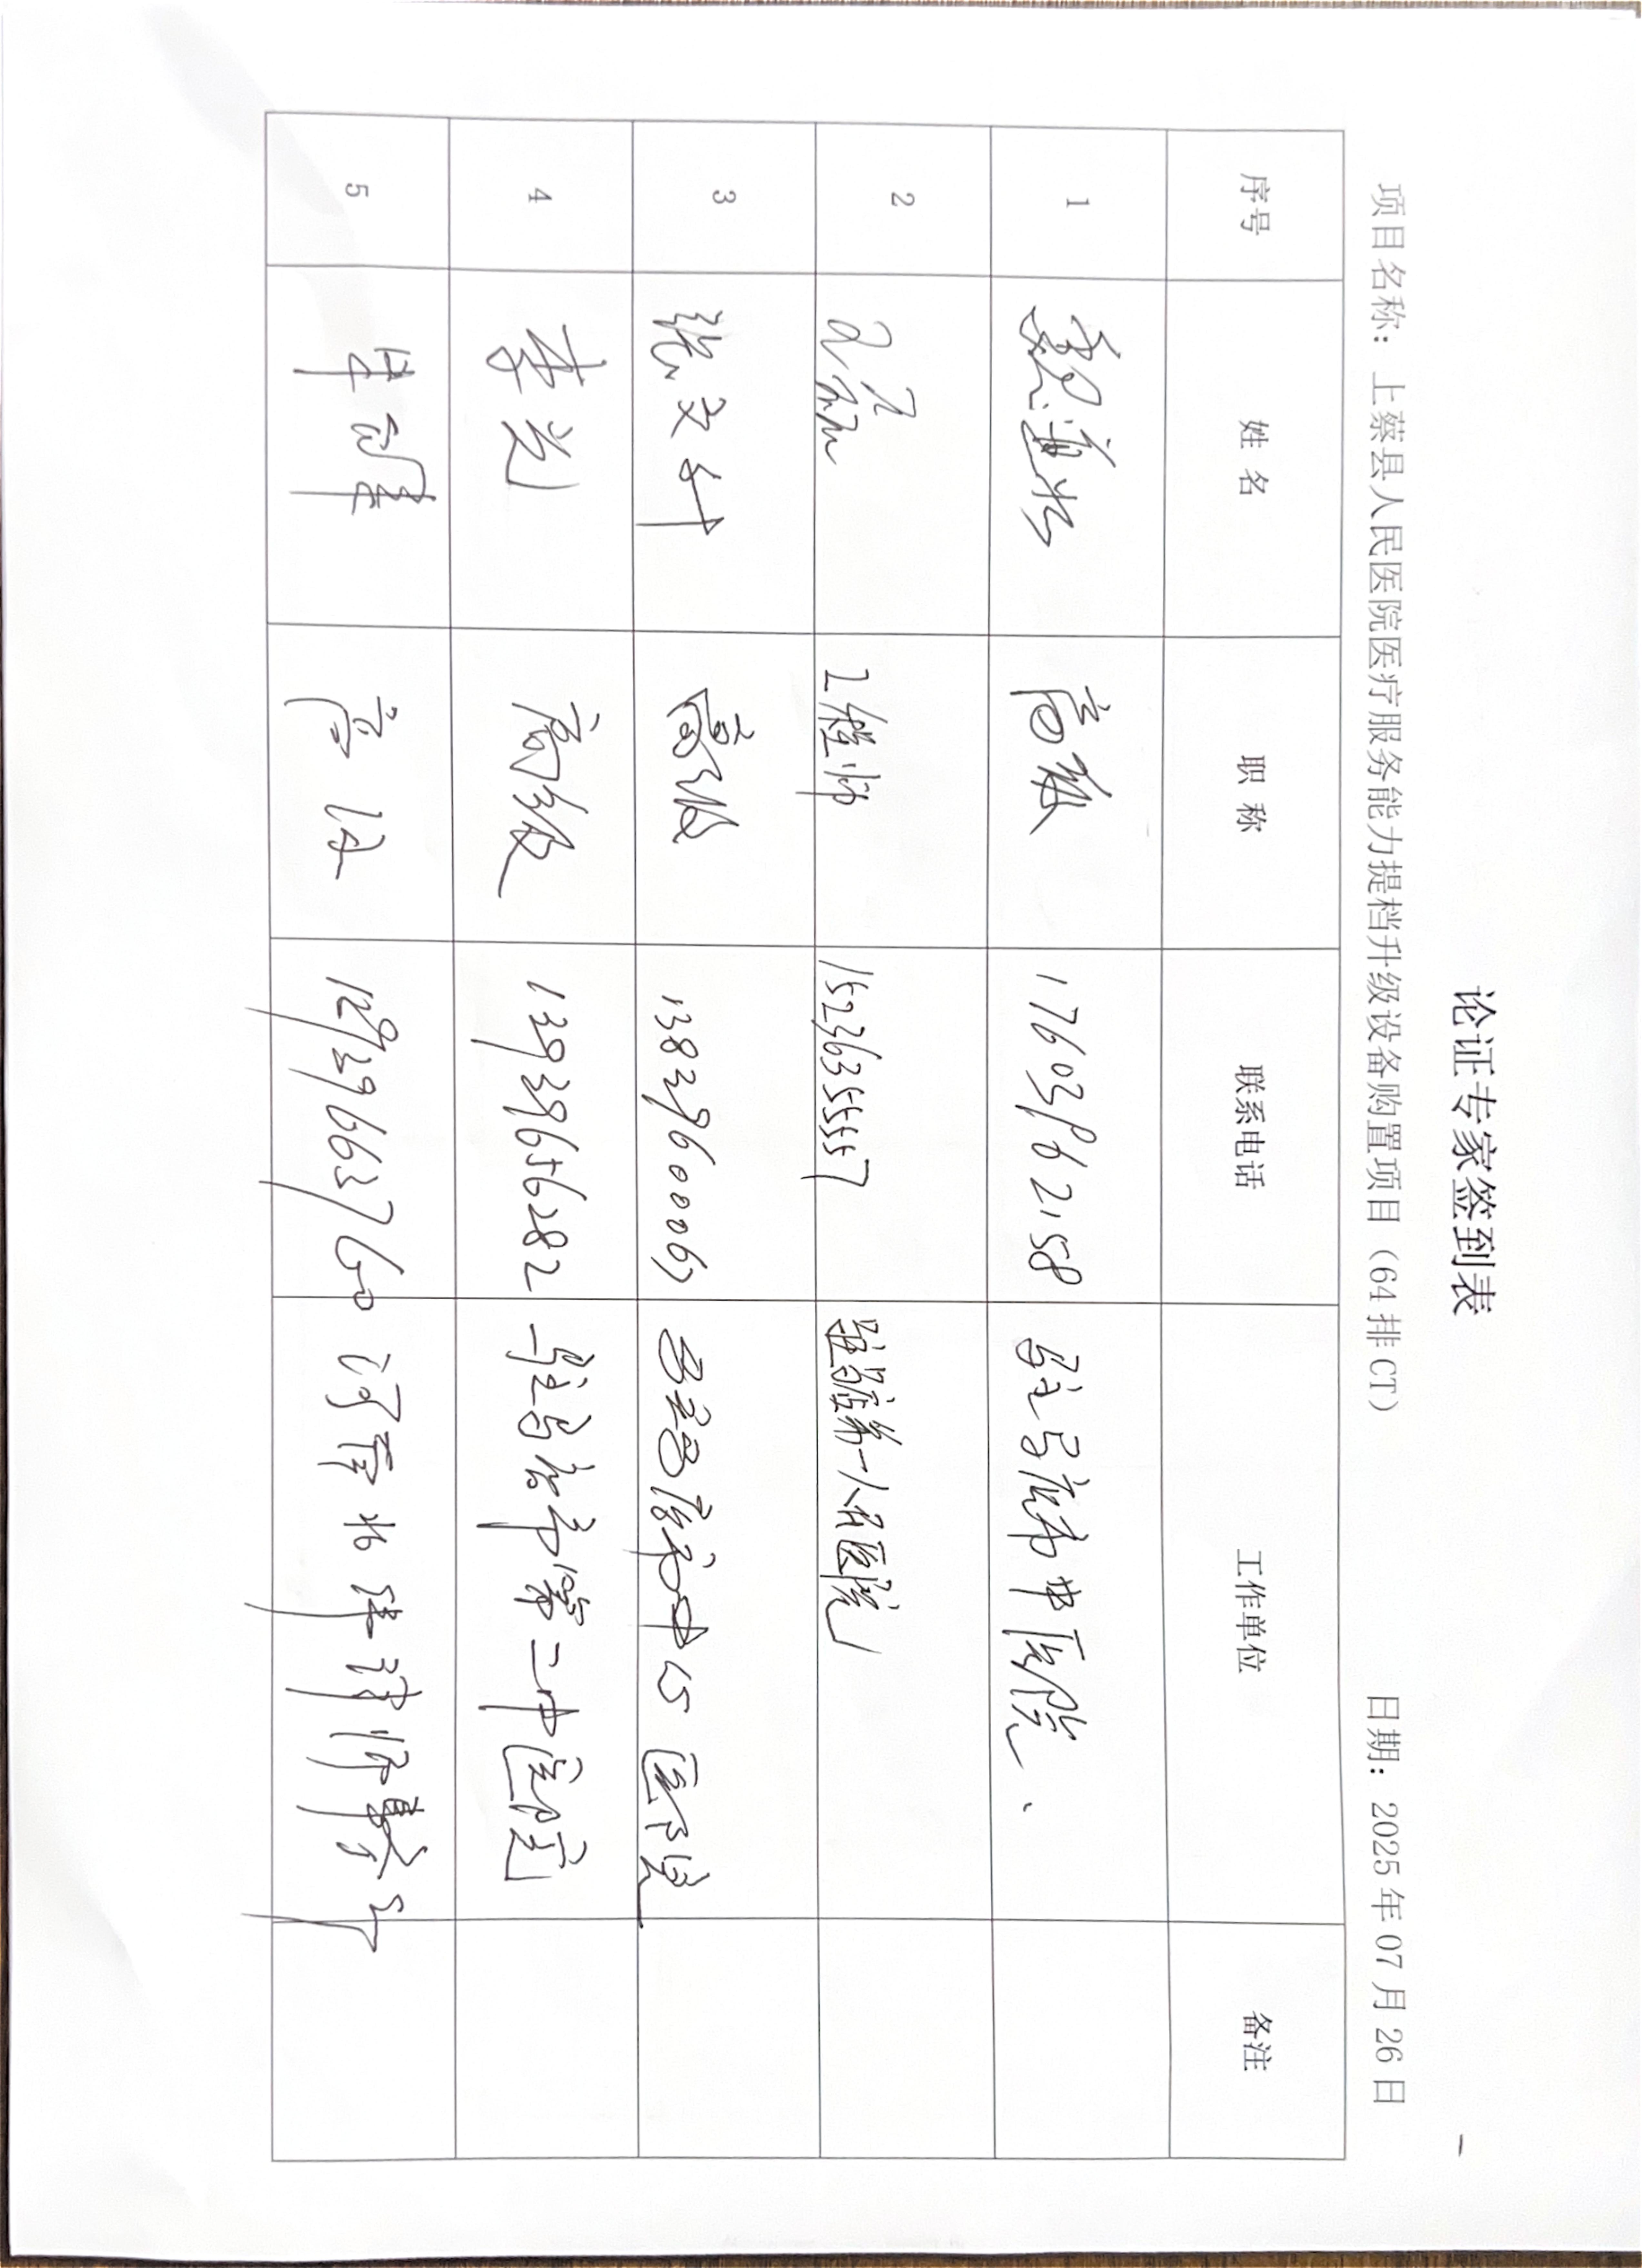 论证专家签到表
项目名称：上蔡县人民医院医疗服务能力提档升级设备购置项目（64排CT） 日期：2025年07月26日
序号 姓名 职称 联系电话 工作单位 备注
1 高级 17603962158 驻马店市中医院
2 工程师 15236355557 驻马店第一人民医院
3 张文 高级 13839600067 驻马店市中心医院
4 李 高级 13939656282 驻马店市第二中医院
5 律师事务所